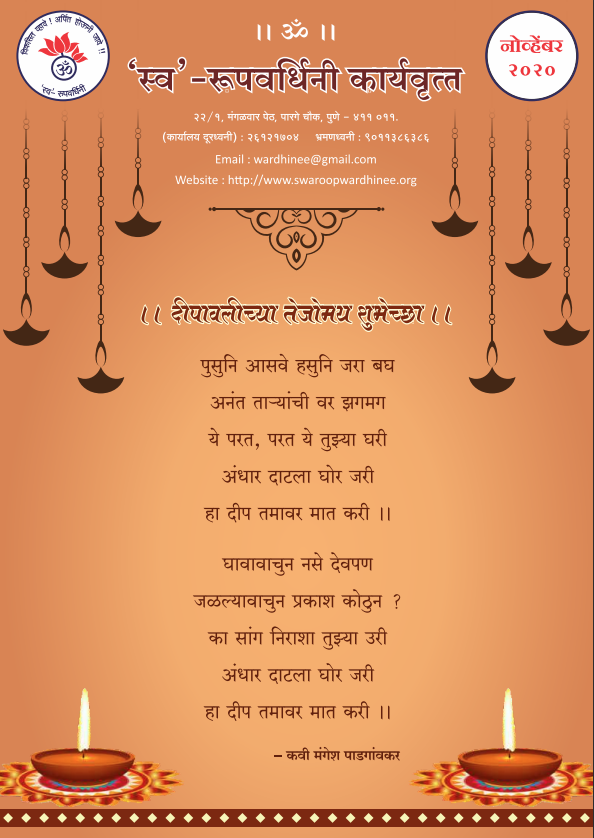 विकसित व्हावे ! अर्पित होऊनी जावे !!
'स्व'- रूपवर्धिनी
।। ॐ ।।
'स्व'-रूपवर्धिनी कार्यवृत्त
नोव्हेंबर
२०२०
२२/१, मंगळवार पेठ, पारगे चौक, पुणे - ४११ ०११.
(कार्यालय दूरध्वनी) : २६१२१७०४ भ्रमणध्वनी : ९०११३८६३८६
Email : wardhinee@gmail.com
Website : http://www.swaroopwardhinee.org
।। दीपावलीच्या तेजोमय शुभेच्छा ।।
पुसुनि आसवे हसुनि जरा बघ
अनंत ताऱ्यांची वर झगमग
ये परत, परत ये तुझ्या घरी
अंधार दाटला घोर जरी
हा दीप तमावर मात करी ।।
घावावाचुन नसे देवपण
जळल्यावाचुन प्रकाश कोठुन ?
का सांग निराशा तुझ्या उरी
अंधार दाटला घोर जरी
हा दीप तमावर मात करी ।।
– कवी मंगेश पाडगांवकर